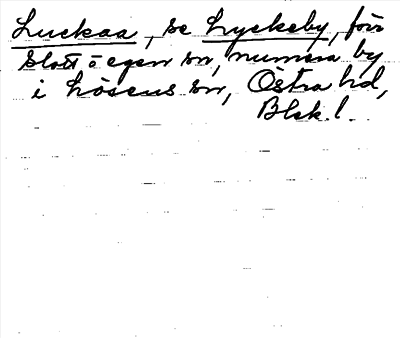 Luckaa, se Lyckeby, förr
slott å egen sn, numera by
i Lösens sn, Östra hd,
Blek. l.